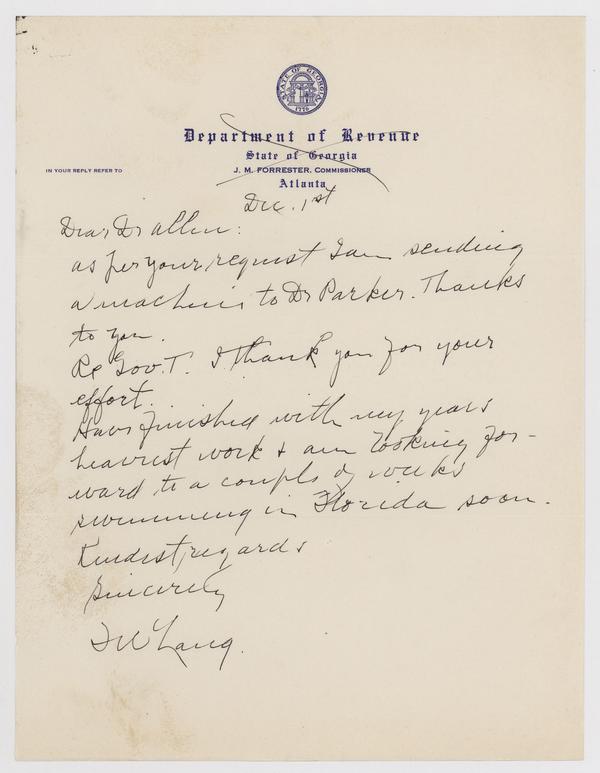 STATE OF GEORGIA
1776
Department of Revenue
State of Georgia
IN YOUR REPLY REFER TO
J. M. FORRESTER, COMMISSIONER
Atlanta
Dec. 1st
Dear Dr Allen:
as per your request I am sending
a machine to Dr Parker. Thanks
to you.
Re Gov. T. I thank you for your
effort.
Have finished with my years
heaviest work & am looking for-
ward to a couple of weeks
swimming in Florida soon.
Kindest regards
Sincerely